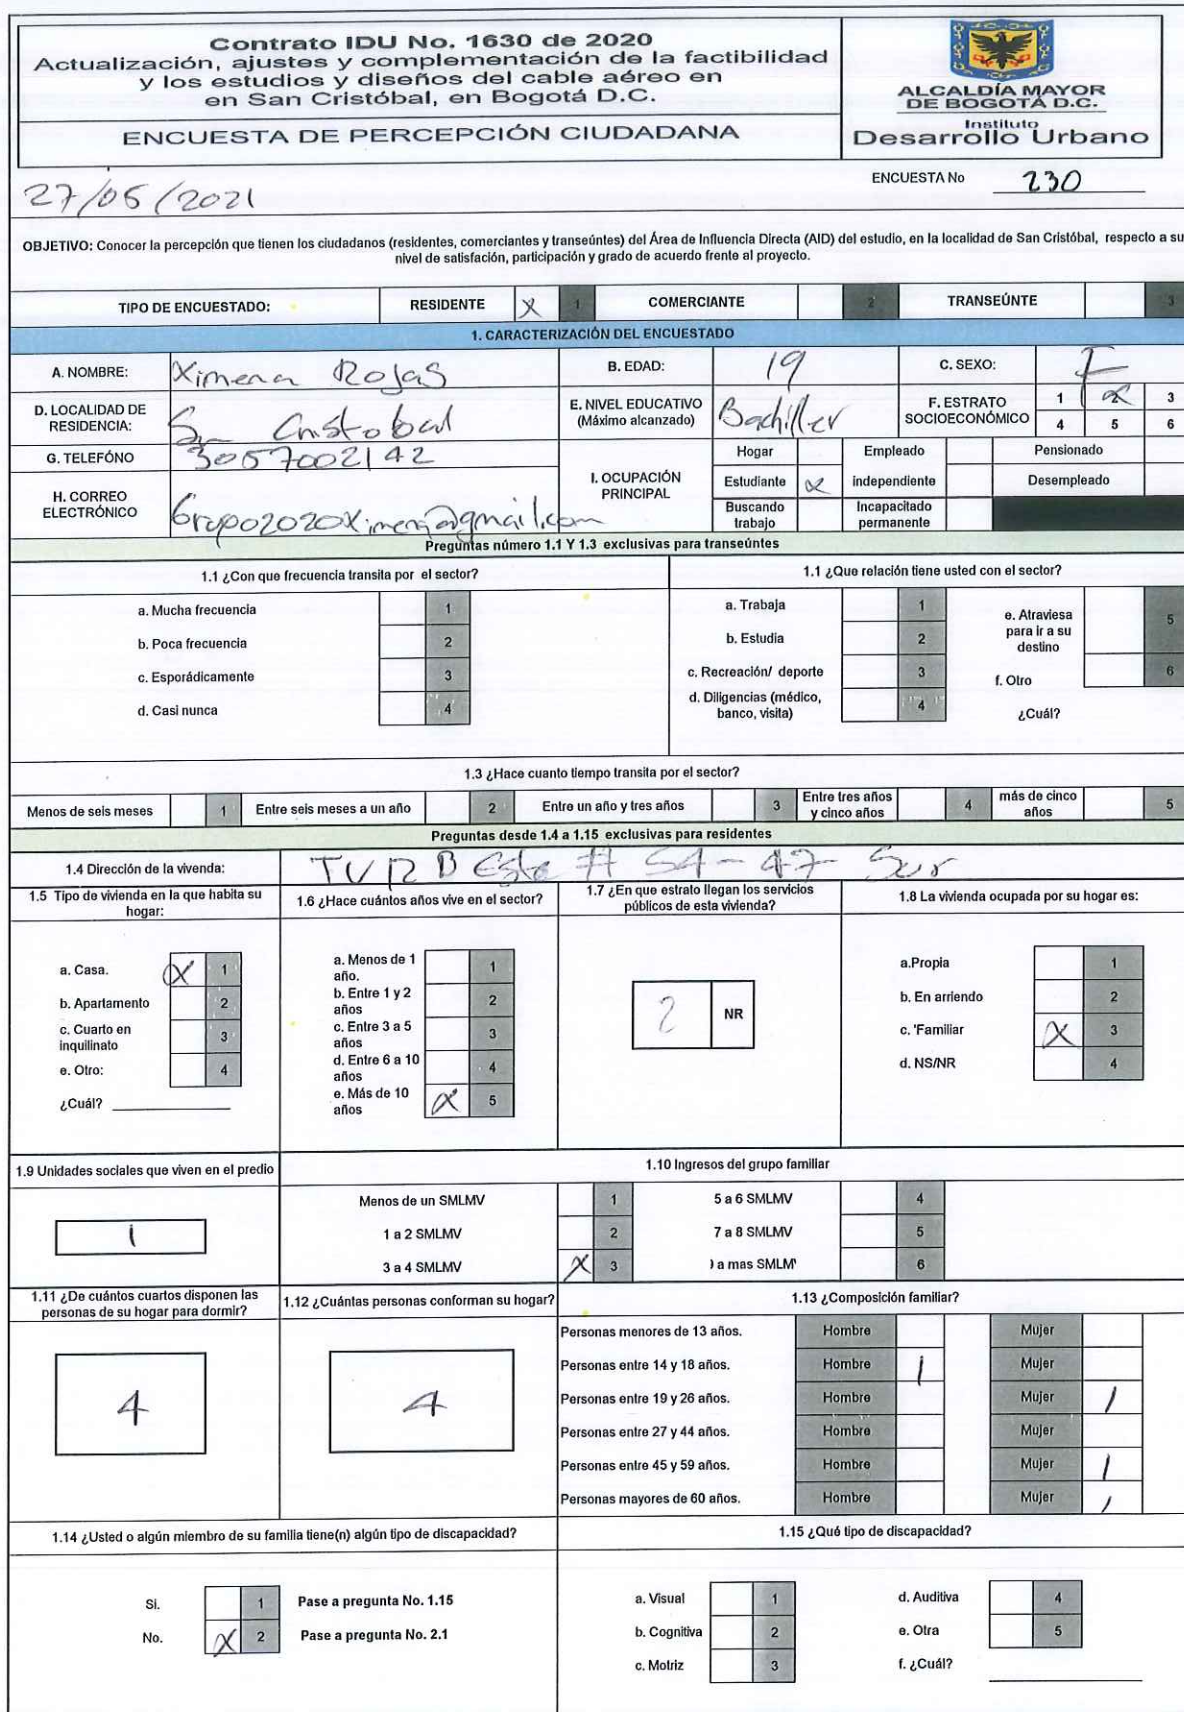 Contrato IDU No. 1630 de 2020
Actualización, ajustes y complementación de la factibilidad
y los estudios y diseños del cable aéreo en
en San Cristóbal, en Bogotá D.C.
ENCUESTA DE PERCEPCIÓN CIUDADANA
ALCALDÍA MAYOR
DE BOGOTÁ D.C.
Instituto
Desarrollo Urbano
27/05/2021
ENCUESTA No 230
OBJETIVO: Conocer la percepción que tienen los ciudadanos (residentes, comerciantes y transeúntes) del Área de Influencia Directa (AID) del estudio, en la localidad de San Cristóbal, respecto a su
nivel de satisfacción, participación y grado de acuerdo frente al proyecto.
TIPO DE ENCUESTADO: RESIDENTE X 1 COMERCIANTE 2 TRANSEÚNTE 3
1. CARACTERIZACIÓN DEL ENCUESTADO
A. NOMBRE: Ximena Rojas B. EDAD: 19 C. SEXO: F
D. LOCALIDAD DE RESIDENCIA: San Cristobal E. NIVEL EDUCATIVO (Máximo alcanzado) Bachiller F. ESTRATO SOCIOECONÓMICO 1 X 3
4 5 6
G. TELEFÓNO 3057002142
H. CORREO ELECTRÓNICO Grupo2020Ximena@gmail.com
I. OCUPACIÓN PRINCIPAL
Hogar Empleado Pensionado
Estudiante X independiente Desempleado
Buscando trabajo Incapacitado permanente
Preguntas número 1.1 Y 1.3 exclusivas para transeúntes
1.1 ¿Con que frecuencia transita por el sector?
a. Mucha frecuencia 1
b. Poca frecuencia 2
c. Esporádicamente 3
d. Casi nunca 4
1.1 ¿Que relación tiene usted con el sector?
a. Trabaja 1
b. Estudia 2
c. Recreación/ deporte 3
d. Diligencias (médico, banco, visita) 4
e. Atraviesa para ir a su destino 5
f. Otro 6
¿Cuál?
1.3 ¿Hace cuanto tiempo transita por el sector?
Menos de seis meses 1 Entre seis meses a un año 2 Entre un año y tres años 3 Entre tres años y cinco años 4 más de cinco años 5
Preguntas desde 1.4 a 1.15 exclusivas para residentes
1.4 Dirección de la vivenda: TV 12 B Este # 54-47- Sur
1.5 Tipo de vivienda en la que habita su hogar:
a. Casa. X 1
b. Apartamento 2
c. Cuarto en inquilinato 3
e. Otro: 4
¿Cuál?
1.6 ¿Hace cuántos años vive en el sector?
a. Menos de 1 año. 1
b. Entre 1 y 2 años 2
c. Entre 3 a 5 años 3
d. Entre 6 a 10 años 4
e. Más de 10 años X 5
1.7 ¿En que estrato llegan los servicios públicos de esta vivienda?
2 NR
1.8 La vivienda ocupada por su hogar es:
a.Propia 1
b. En arriendo 2
c. 'Familiar X 3
d. NS/NR 4
1.9 Unidades sociales que viven en el predio
1
1.10 Ingresos del grupo familiar
Menos de un SMLMV 1 5 a 6 SMLMV 4
1 a 2 SMLMV 2 7 a 8 SMLMV 5
3 a 4 SMLMV X 3 ) a mas SMLM' 6
1.11 ¿De cuántos cuartos disponen las personas de su hogar para dormir?
4
1.12 ¿Cuántas personas conforman su hogar?
4
1.13 ¿Composición familiar?
Personas menores de 13 años. Hombre Mujer
Personas entre 14 y 18 años. Hombre 1 Mujer
Personas entre 19 y 26 años. Hombre Mujer 1
Personas entre 27 y 44 años. Hombre Mujer
Personas entre 45 y 59 años. Hombre Mujer 1
Personas mayores de 60 años. Hombre Mujer 1
1.14 ¿Usted o algún miembro de su familia tiene(n) algún tipo de discapacidad?
Si. 1 Pase a pregunta No. 1.15
No. X 2 Pase a pregunta No. 2.1
1.15 ¿Qué tipo de discapacidad?
a. Visual 1 d. Auditiva 4
b. Cognitiva 2 e. Otra 5
c. Motriz 3 f. ¿Cuál?